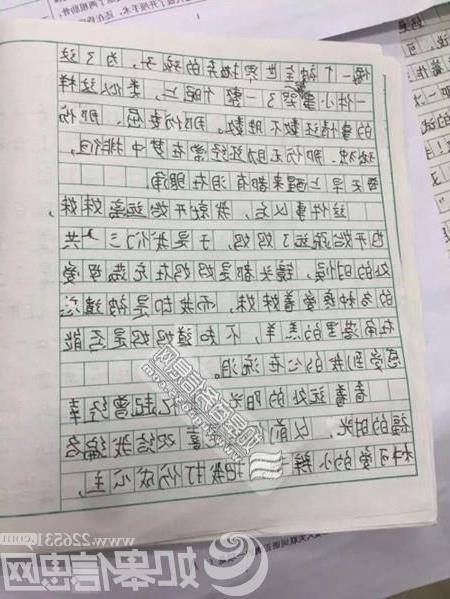 像一个被全世界抛弃的孩子,为了这
一件小事哭了整整一个晚上,类似这样
的事情还数不胜数。那份委屈、那份
孤独、那份无助还经常在梦中徘徊,
每天早上醒来都有泪在眼角
这件事以后,我就开始远离妹妹,
也开始疏远了妈妈,于是我们三人共
处的时候,镜头都是妈妈在充满母爱
的各种疼爱着妹妹,而我却是被遗忘
在角落里的羔羊,不知道妈妈是否能
感受到我的心在流泪。
看着远处的阳光,忆起曾经幸
福的时光。以前喜欢给我编各
种可爱的小辫子,把我打扮成公主,
www.226531.com
如果信息网